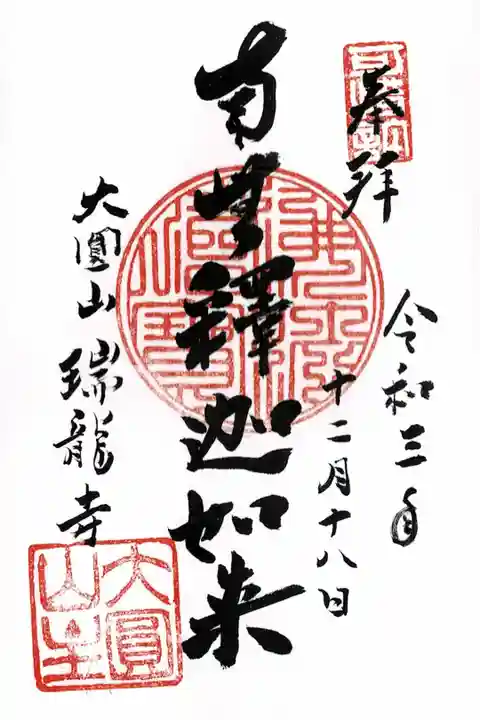 奉拝
令和三年
十二月十八日
南無釋迦如来
大圓山瑞龍寺
大圓山主